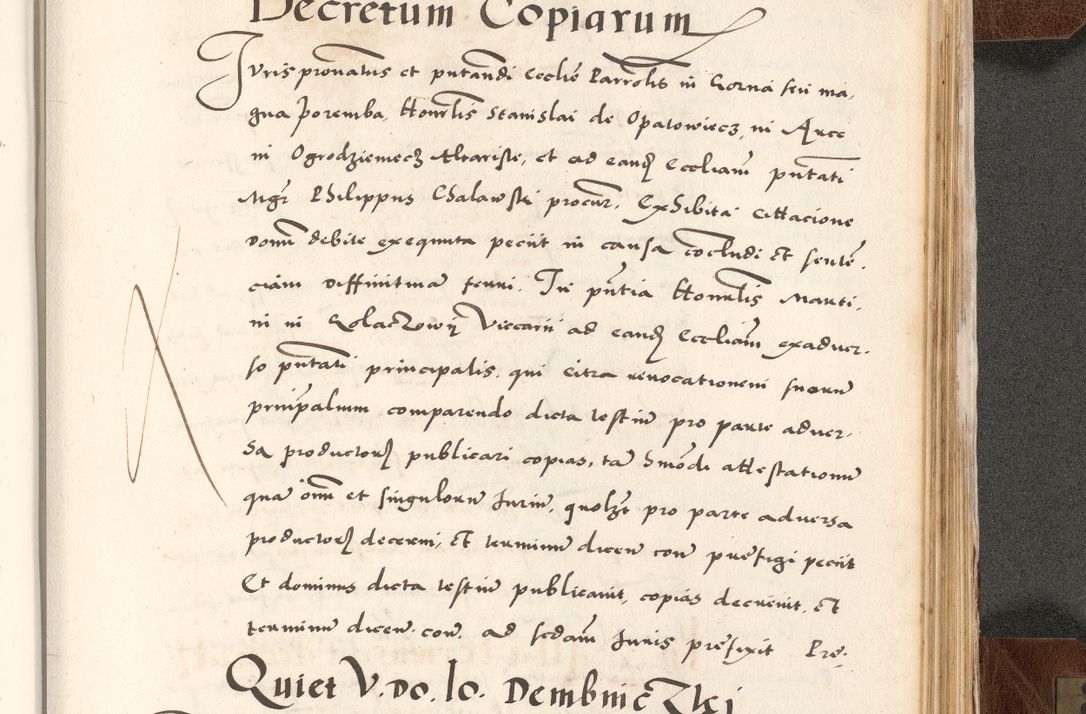 Decretum Copiarum
Jurispronatus et putandi Ecclie Parrolis in Gorna seu ma,
gna Poremba, Honrlis Stanislai de Opatowiecz, in Arce
in Ogrodziemecz Altariste, et ad eand Eccliam pntati
Mgr Philippus Chalawski procur. Exhibita Cittacione
domi debite exequuta peciit in causa cocludi et senten,
ciam diffinitiua ferri. In pntia Honrlis Marti,
ni in Viccarii ad eand Eccliam exaduer,
so pntati principalis, qui Citra reuocationem suoru
prnipalium comparendo dicta testiu pro parte aduer,
sa productor publicari copias, ta hmodi attestationu
qua oim et singuloru Juriu, quolzt pro parte aduersa
productor decerni, et terminu dicen con prefigi peciit
Et dominus dicta testiu publicauit, copias decreuit, et
terminu dicen. con. ad scdam Juris prefixit Pre:
Quiet V. Do. lo. Dembniczki